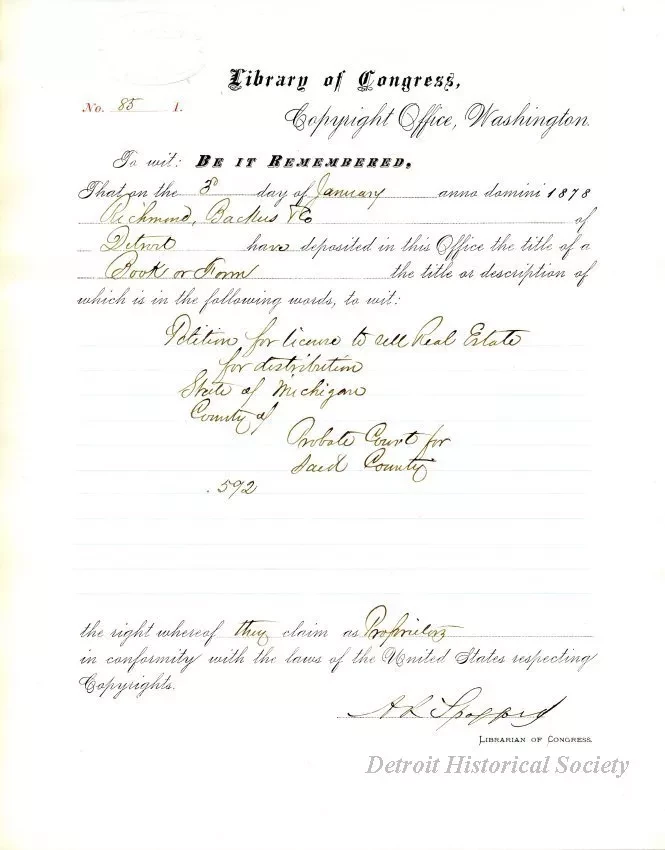 Library of Congress,
No. 85 1.
Copyright Office, Washington.
To wit: BE IT REMEMBERED.
That on the 3d day of January anno domini 1878
Richmond, Backus & Co of
Detroit have deposited in this Office the title of a
Book or Form the title or description of
which is in the following words, to wit:
Petition for license to sell Real Estate
for distribution
State of Michigan
County of
Probate Court for
said County
.592
the right whereof they claim as Proprietors
in conformity with the laws of the United States respecting
Copyrights.
A R Spofford
LIBRARIAN OF CONGRESS.
Detroit Historical Society